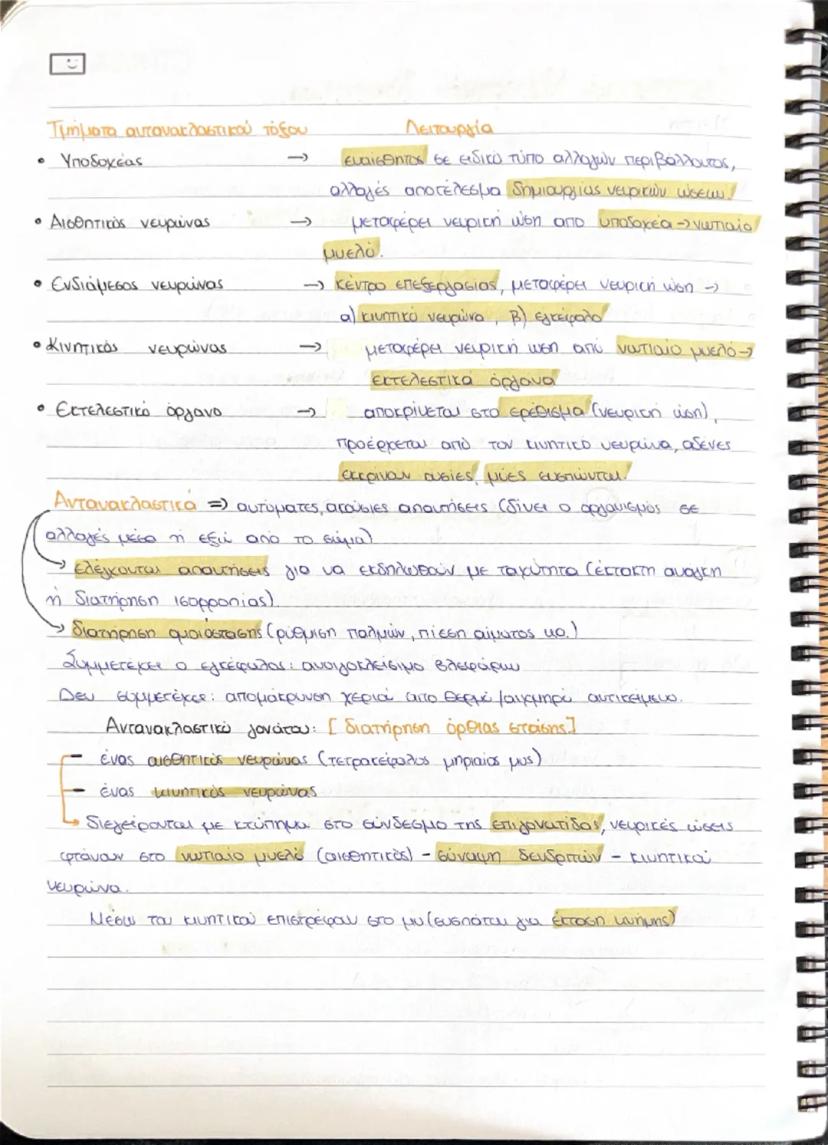 Τμήματα αντανακλαστικού τόξου Λειτουργία
• Υποδοχέας → ευαίσθητος σε ειδικό τύπο αλλαγών περιβάλλοντος,
αλλαγές αποτέλεσμα δημιουργίας νευρικών ώσεων.
• Αισθητικός νευρώνας → μεταφέρει νευρική ώση από υποδοχέα → νωτιαίο
μυελό.
• Ενδιάμεσος νευρώνας → κέντρο επεξεργασίας, μεταφέρει νευρική ώση →
α) κινητικό νευρώνα, β) εγκέφαλο
• Κινητικός νευρώνας → μεταφέρει νευρική ώση από νωτιαίο μυελό →
εκτελεστικά όργανα
• Εκτελεστικό όργανο → αποκρίνεται στο ερέθισμα (νευρική ώση),
προέρχεται από τον κινητικό νευρώνα, αδένες
εκκρίνουν ουσίες, μύες συσπώνται.
Αντανακλαστικά ⇒ αυτόματες, ακούσιες απαντήσεις (δίνει ο οργανισμός σε
αλλαγές μέσα ή έξω από το σώμα)
→ ελέγχονται απαντήσεις για να εκδηλωθούν με ταχύτητα (έκτακτη ανάγκη
ή διατήρηση ισορροπίας).
→ διατήρηση ομοιόστασης (ρύθμιση παλμών, πίεση αίματος κα.)
Συμμετέχει ο εγκέφαλος: ανοιγοκλείσιμο βλεφάρων
Δεν συμμετέχει: απομάκρυνση χεριού από θερμό/αιχμηρό αντικείμενο.
Αντανακλαστικό γονάτου: [διατήρηση όρθιας στάσης]
– ένας αισθητικός νευρώνας (τετρακέφαλος μηριαίος μυς)
– ένας κινητικός νευρώνας
→ διεγείρονται με κτύπημα στο σύνδεσμο της επιγονατίδας, νευρικές ώσεις
φτάνουν στο νωτιαίο μυελό (αισθητικός) – σύναψη δενδριτών – κινητικού
νευρώνα.
Μέσω του κινητικού επιστρέφουν στο μυ (συσπάται για έκταση κνήμης)